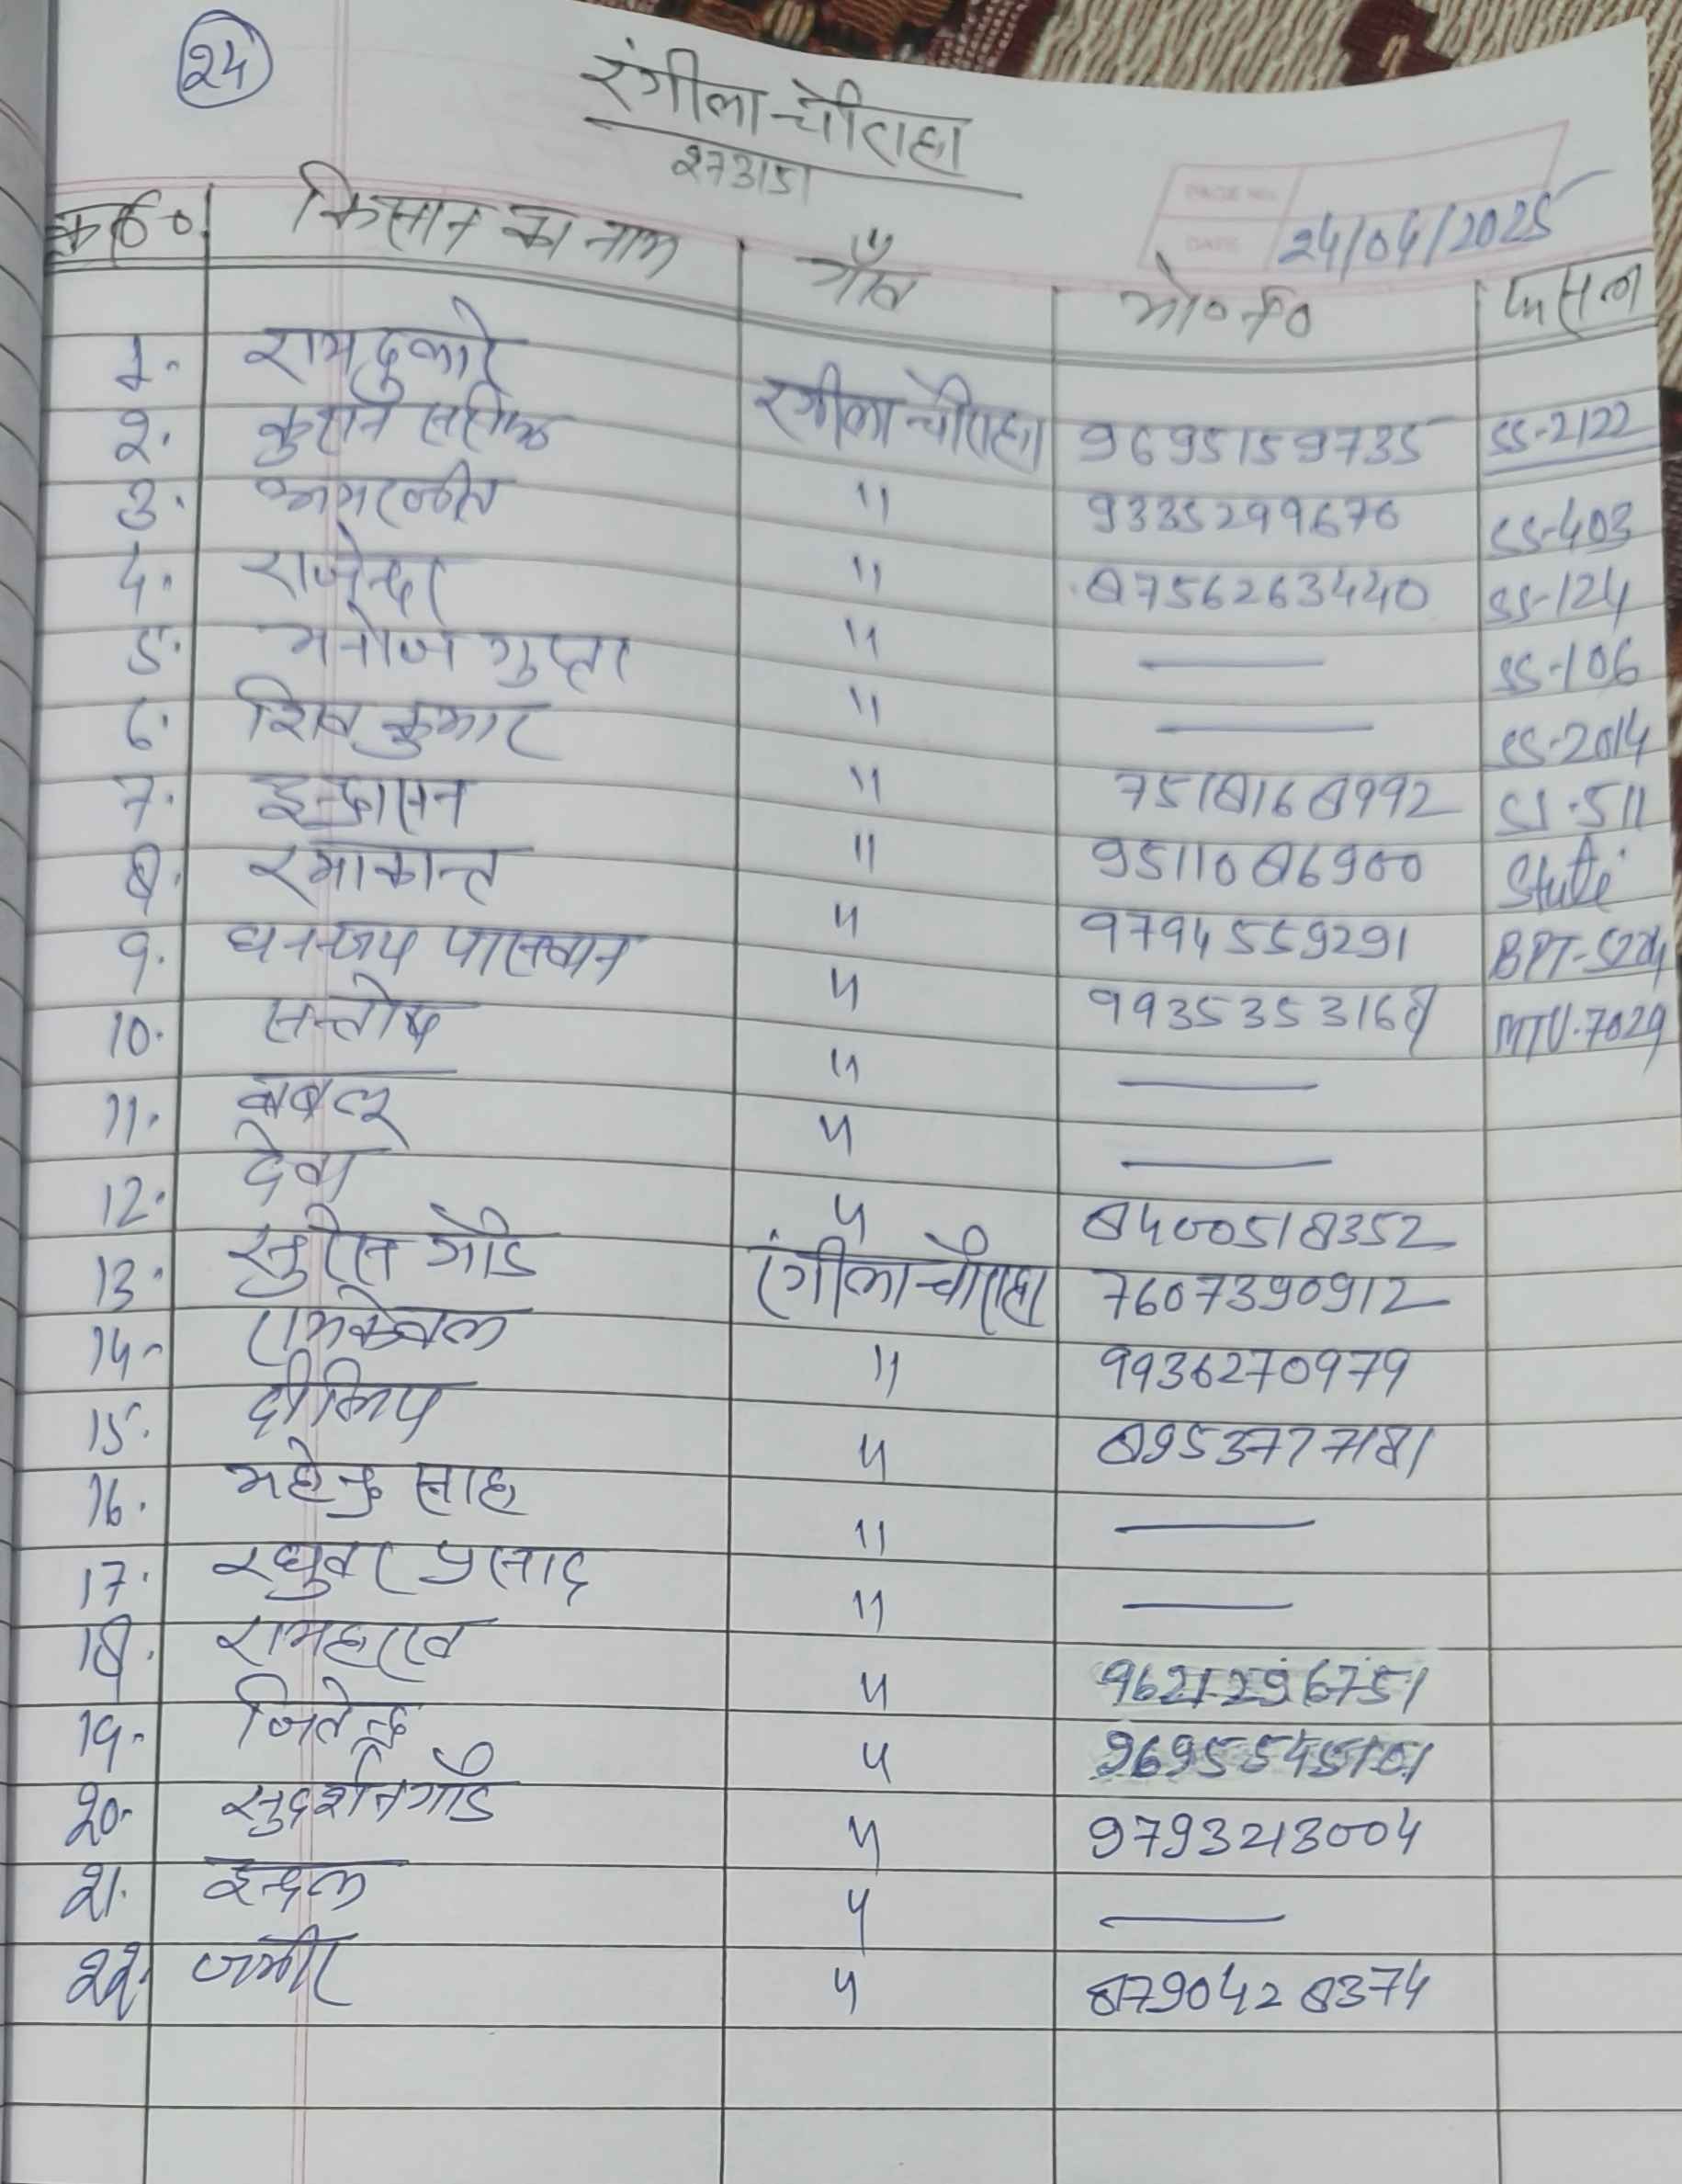 24
रंगीला चौराहा
273151
PAGE NO.
DATE 24/04/2025
क्र०सं० किसान का नाम गाँव मो०नं० फसल
1. रामदुलारे रंगीला चौराहा 9695159735 SS-2122
2. " 9335299670 SS-403
3. अमरजीत " 8756263440 SS-124
4. राजेन्दर " — SS-106
5. मनोज गुप्ता " — SS-2014
6. शिव कुमार " 7518168992 SS-511
7. इन्द्रासन " 9511086900
8. रमाकान्त " 9794559291 BPT-5204
9. धनन्जय पासवान " 993535316 MTU-7029
10. सन्तोष " —
11. बबलू " —
12. देवा " 8400518352
13. सुरेस गोंड रंगीला चौराहा 7607390912
14. रामकेवल " 9936270979
15. दीलिप " 8953777181
16. महेन्द्र साह " —
17. रघुवर प्रसाद " —
18. " 9621296751
19. जितेन्द्र " 9695545101
20. सुदर्शन गोंड " 9793213004
21. इन्दल " —
22. जमीर " 8790428374